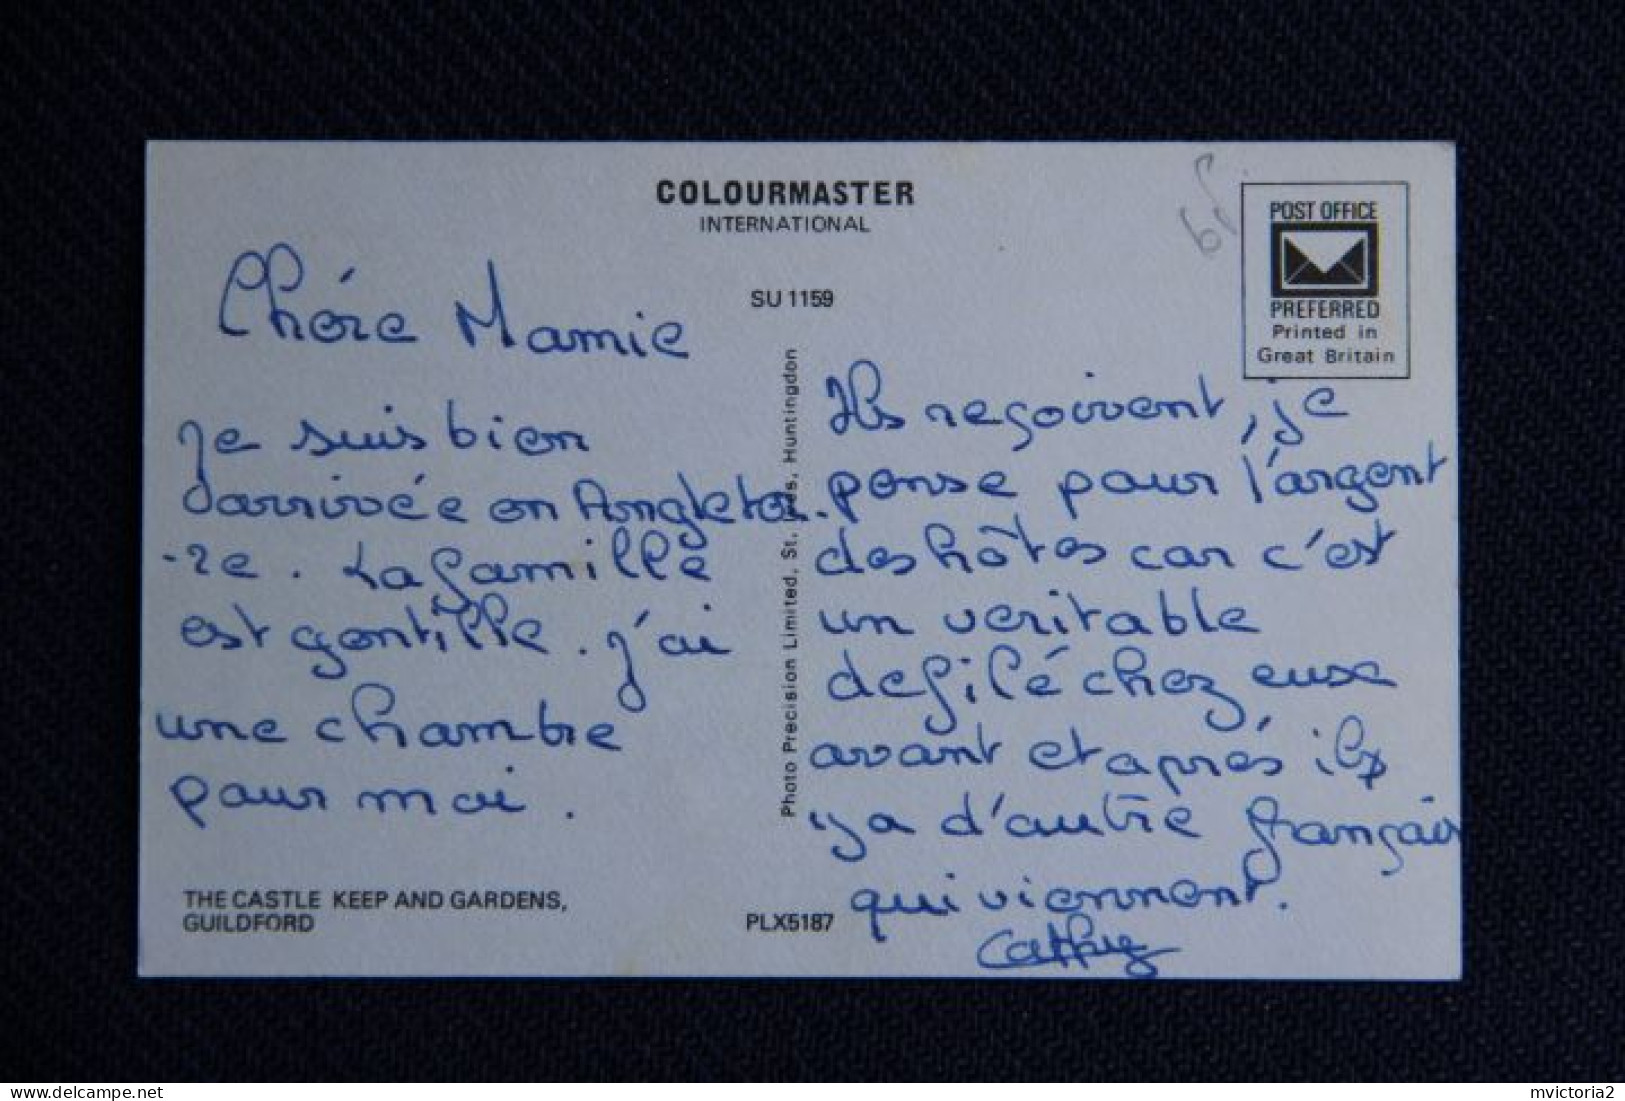 COLOURMASTER
INTERNATIONAL
SU 1159
POST OFFICE
PREFERRED
Printed in
Great Britain
Chére Mamie
Je suis bien
arrivée en Angleter
-re. La famille
est gentille. J'ai
une chambre
pour moi.
THE CASTLE KEEP AND GARDENS,
GUILDFORD
PLX5187
Photo Precision Limited, St. Ives, Huntingdon
Ils reçoivent, je
pense pour l'argent
des hôtes car c'est
un veritable
defilé chez eux
avant et aprés il
y a d'autre français
qui viennent.
Cathy
mvictoria2